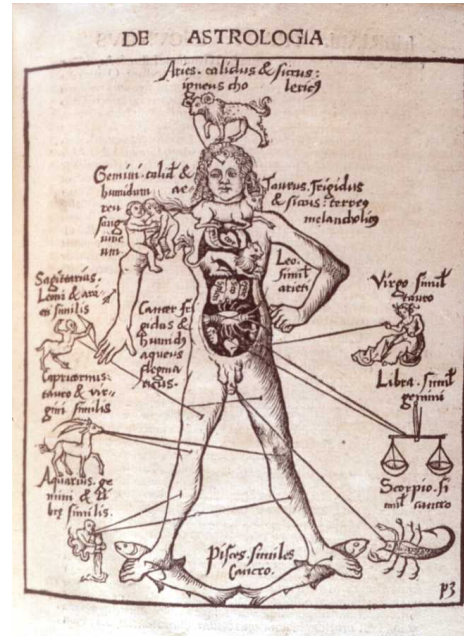 DE ASTROLOGIA
Aries. calidus & siccus:
igneus cho lericꝰ
Gemini. calidꝰ &
humidum ae
reu
sang
uine
um
Taurus. frigidus
& sicus: terreꝰ
melancholicꝰ
Leo.
similꝭ
arieti
Sagittarius.
Leoni & arie
ti similis
Cancer fri
gidus &
humidꝰ
aqueus
flegma
ticus.
Virgo similꝭ
tauro
Capricornus:
tauro & vir
gini similis
Libra. similꝭ
gemini
Aquarius. ge
mini & li
brę similis.
Scorpio. si
milꝭ cancro
Pisces. similes
Cancro.